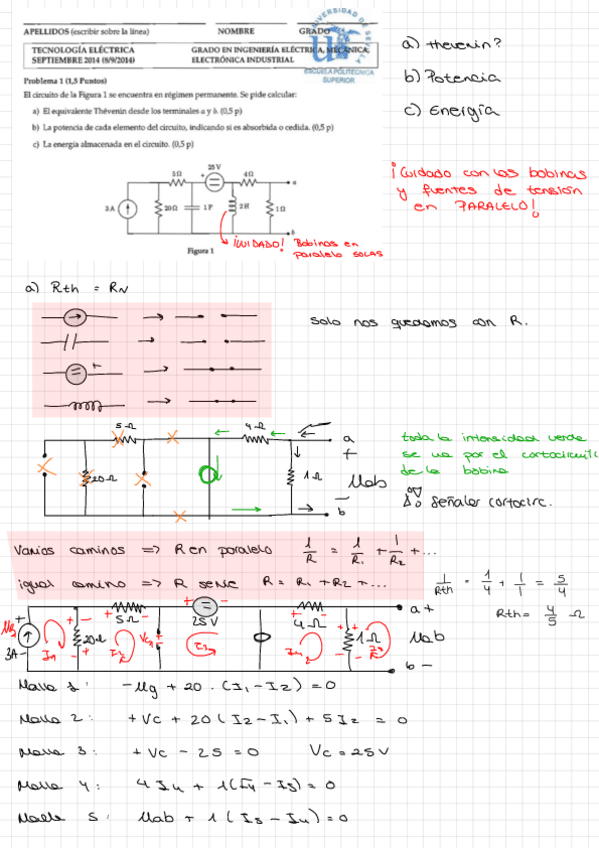 APELLIDOS (escribir sobre la línea) NOMBRE GRADO
UNIVERSIDAD DE SEVILLA
ESCUELA POLITÉCNICA SUPERIOR
TECNOLOGÍA ELÉCTRICA
SEPTIEMBRE 2014 (8/9/2014)
GRADO EN INGENIERÍA ELÉCTRICA, MECÁNICA,
ELECTRÓNICA INDUSTRIAL
Problema 1 (1,5 Puntos)
El circuito de la Figura 1 se encuentra en régimen permanente. Se pide calcular:
a) El equivalente Thévenin desde los terminales a y b. (0,5 p)
b) La potencia de cada elemento del circuito, indicando si es absorbida o cedida. (0,5 p)
c) La energía almacenada en el circuito. (0,5 p)
a) Thevenin?
b) Potencia
c) Energía
¡Cuidado con las bobinas
y fuentes de tensión
en PARALELO!
5Ω 25 V 4Ω a
3A 20Ω 1F 2H 1Ω
b
Figura 1
¡CUIDADO! Bobinas en
paralelo solas
a) Rth = RN
Solo nos quedamos con R.
5Ω 4Ω a
+
20Ω 1Ω Uab
-
b
toda la intensidad verde
se va por el cortocircuito
de la bobina
Señalar cortocirc.
Varios caminos => R en paralelo 1/R = 1/R1 + 1/R2 + ...
igual camino => R serie R = R1 + R2 + ...
1/Rth = 1/4 + 1/1 = 5/4
Rth = 4/5 Ω
+ - + - a +
5Ω 25V 4Ω
Ug 3A I1 20Ω I2 Vc I3 I4 1Ω I5 Uab
b -
Malla 1: -Ug + 20 · (I1 - I2) = 0
Malla 2: +Vc + 20 (I2 - I1) + 5I2 = 0
Malla 3: +Vc - 25 = 0 Vc = 25V
Malla 4: 4I4 + 1(I4 - I5) = 0
Malla 5: Uab + 1(I5 - I4) = 0